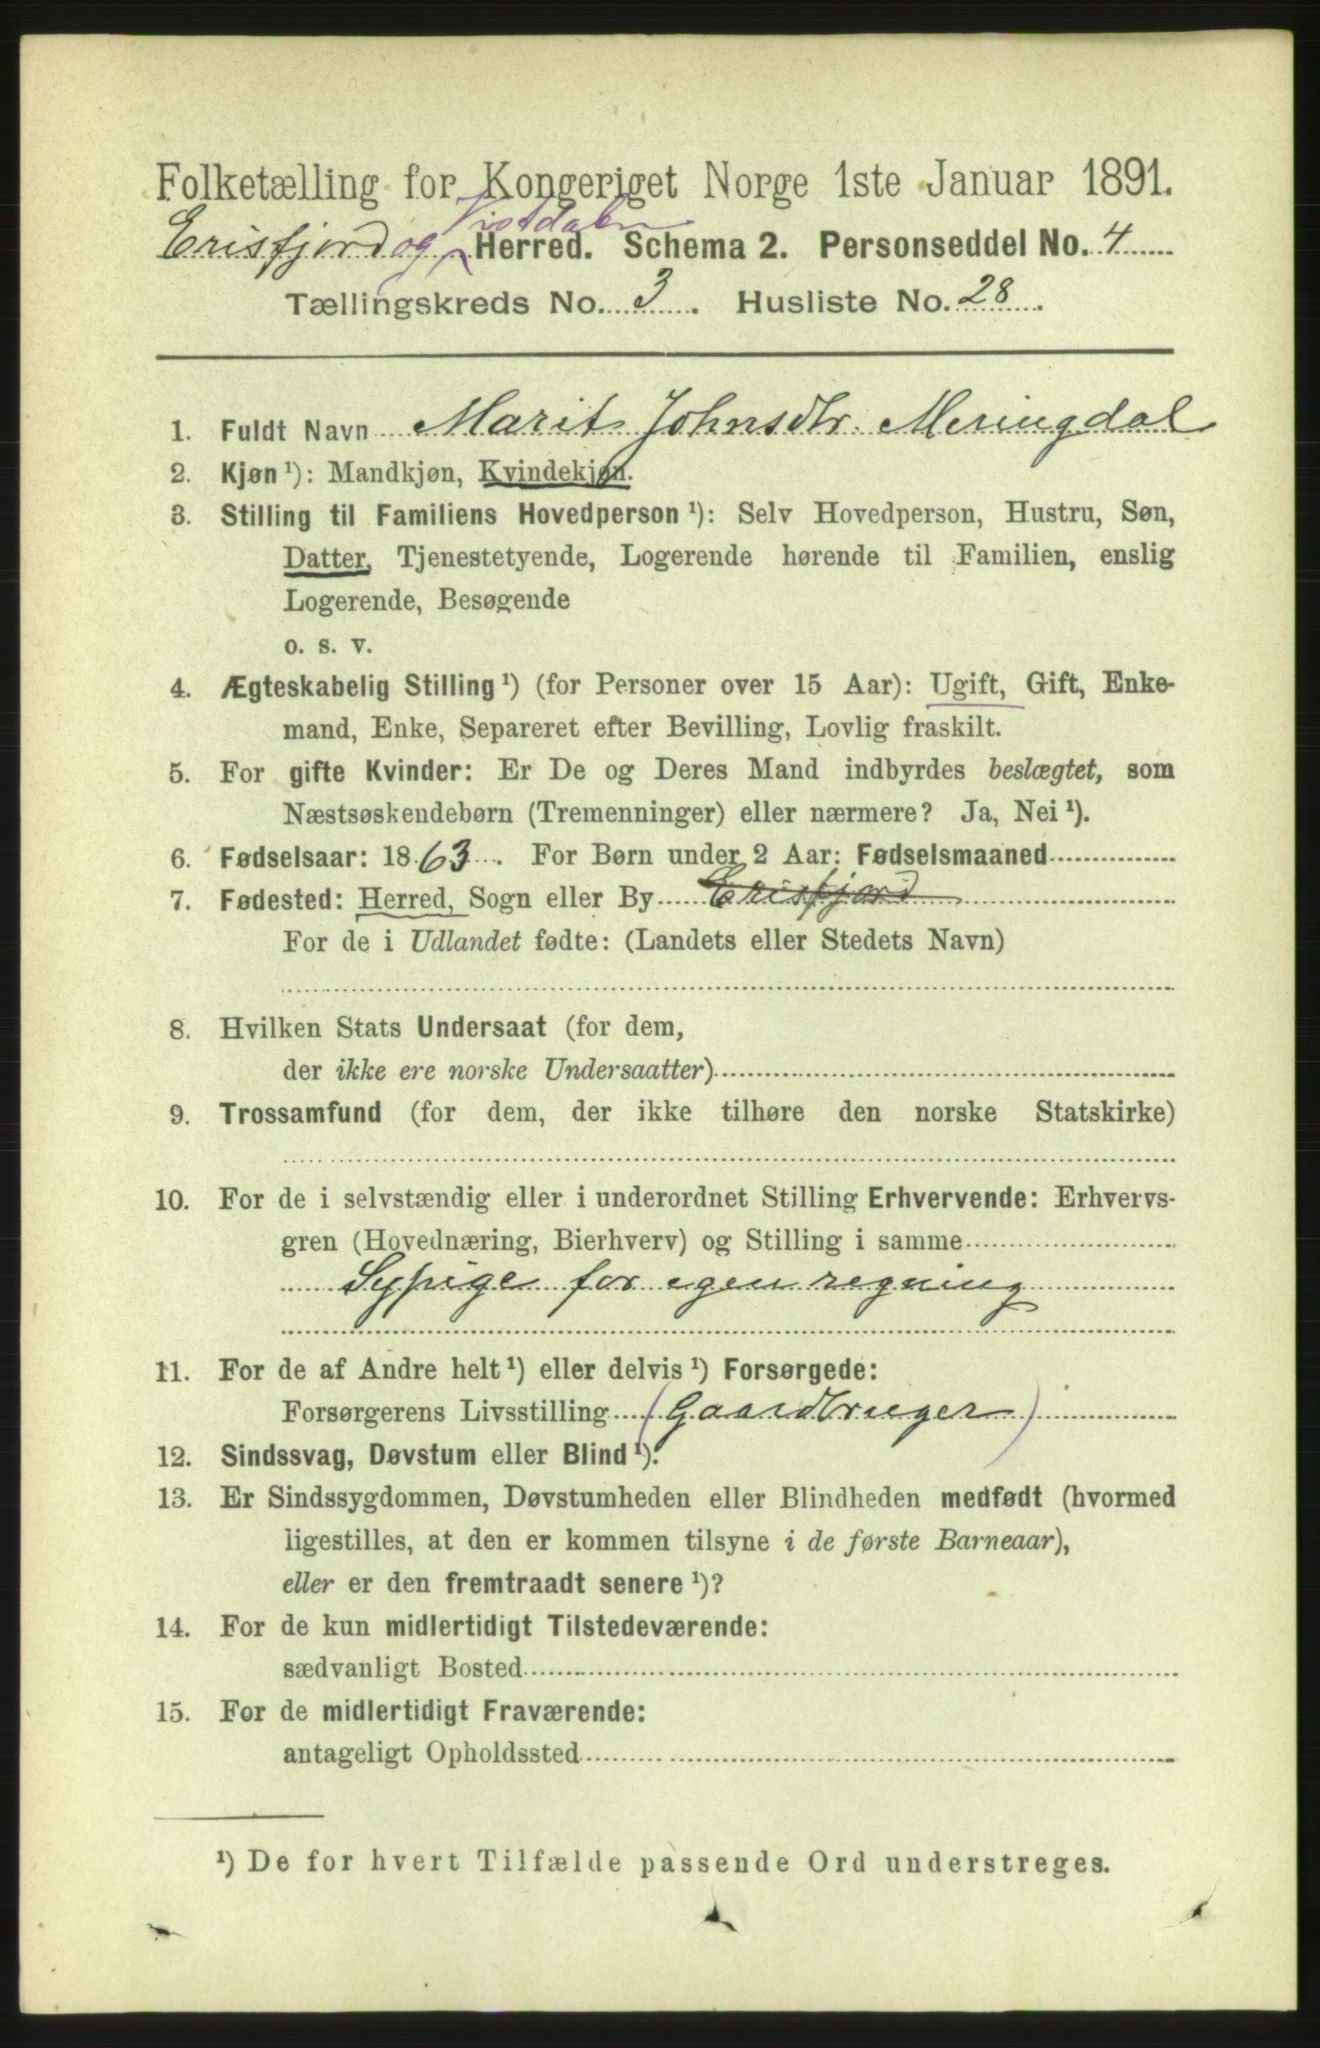 Folketælling for Kongeriget Norge 1ste Januar 1891.
Erisfjord og Vistdalen Herred. Schema 2. Personseddel No. 4
Tællingskreds No. 3. Husliste No. 28.
1. Fuldt Navn Marit Johnsdtr. Meringdal
2. Kjøn ¹): Mandkjøn, Kvindekjøn.
3. Stilling til Familiens Hovedperson ¹): Selv Hovedperson, Hustru, Søn,
Datter, Tjenestetyende, Logerende hørende til Familien, enslig
Logerende, Besøgende
o. s. v.
4. Ægteskabelig Stilling ¹) (for Personer over 15 Aar): Ugift, Gift, Enke-
mand, Enke, Separeret efter Bevilling, Lovlig fraskilt.
5. For gifte Kvinder: Er De og Deres Mand indbyrdes beslægtet, som
Næstsøskendebørn (Tremenninger) eller nærmere? Ja, Nei ¹).
6. Fødselsaar: 1863. For Børn under 2 Aar: Fødselsmaaned
7. Fødested: Herred, Sogn eller By Erisfjord
For de i Udlandet fødte: (Landets eller Stedets Navn)
8. Hvilken Stats Undersaat (for dem,
der ikke ere norske Undersaatter)
9. Trossamfund (for dem, der ikke tilhøre den norske Statskirke)
10. For de i selvstændig eller i underordnet Stilling Erhvervende: Erhvervs-
gren (Hovednæring, Bierhverv) og Stilling i samme
Sypige for egen regning
11. For de af Andre helt ¹) eller delvis ¹) Forsørgede:
Forsørgerens Livsstilling (Gaardbruger)
12. Sindssvag, Døvstum eller Blind ¹).
13. Er Sindssygdommen, Døvstumheden eller Blindheden medfødt (hvormed
ligestilles, at den er kommen tilsyne i de første Barneaar),
eller er den fremtraadt senere ¹)?
14. For de kun midlertidigt Tilstedeværende:
sædvanligt Bosted
15. For de midlertidigt Fraværende:
antageligt Opholdssted
¹) De for hvert Tilfælde passende Ord understreges.